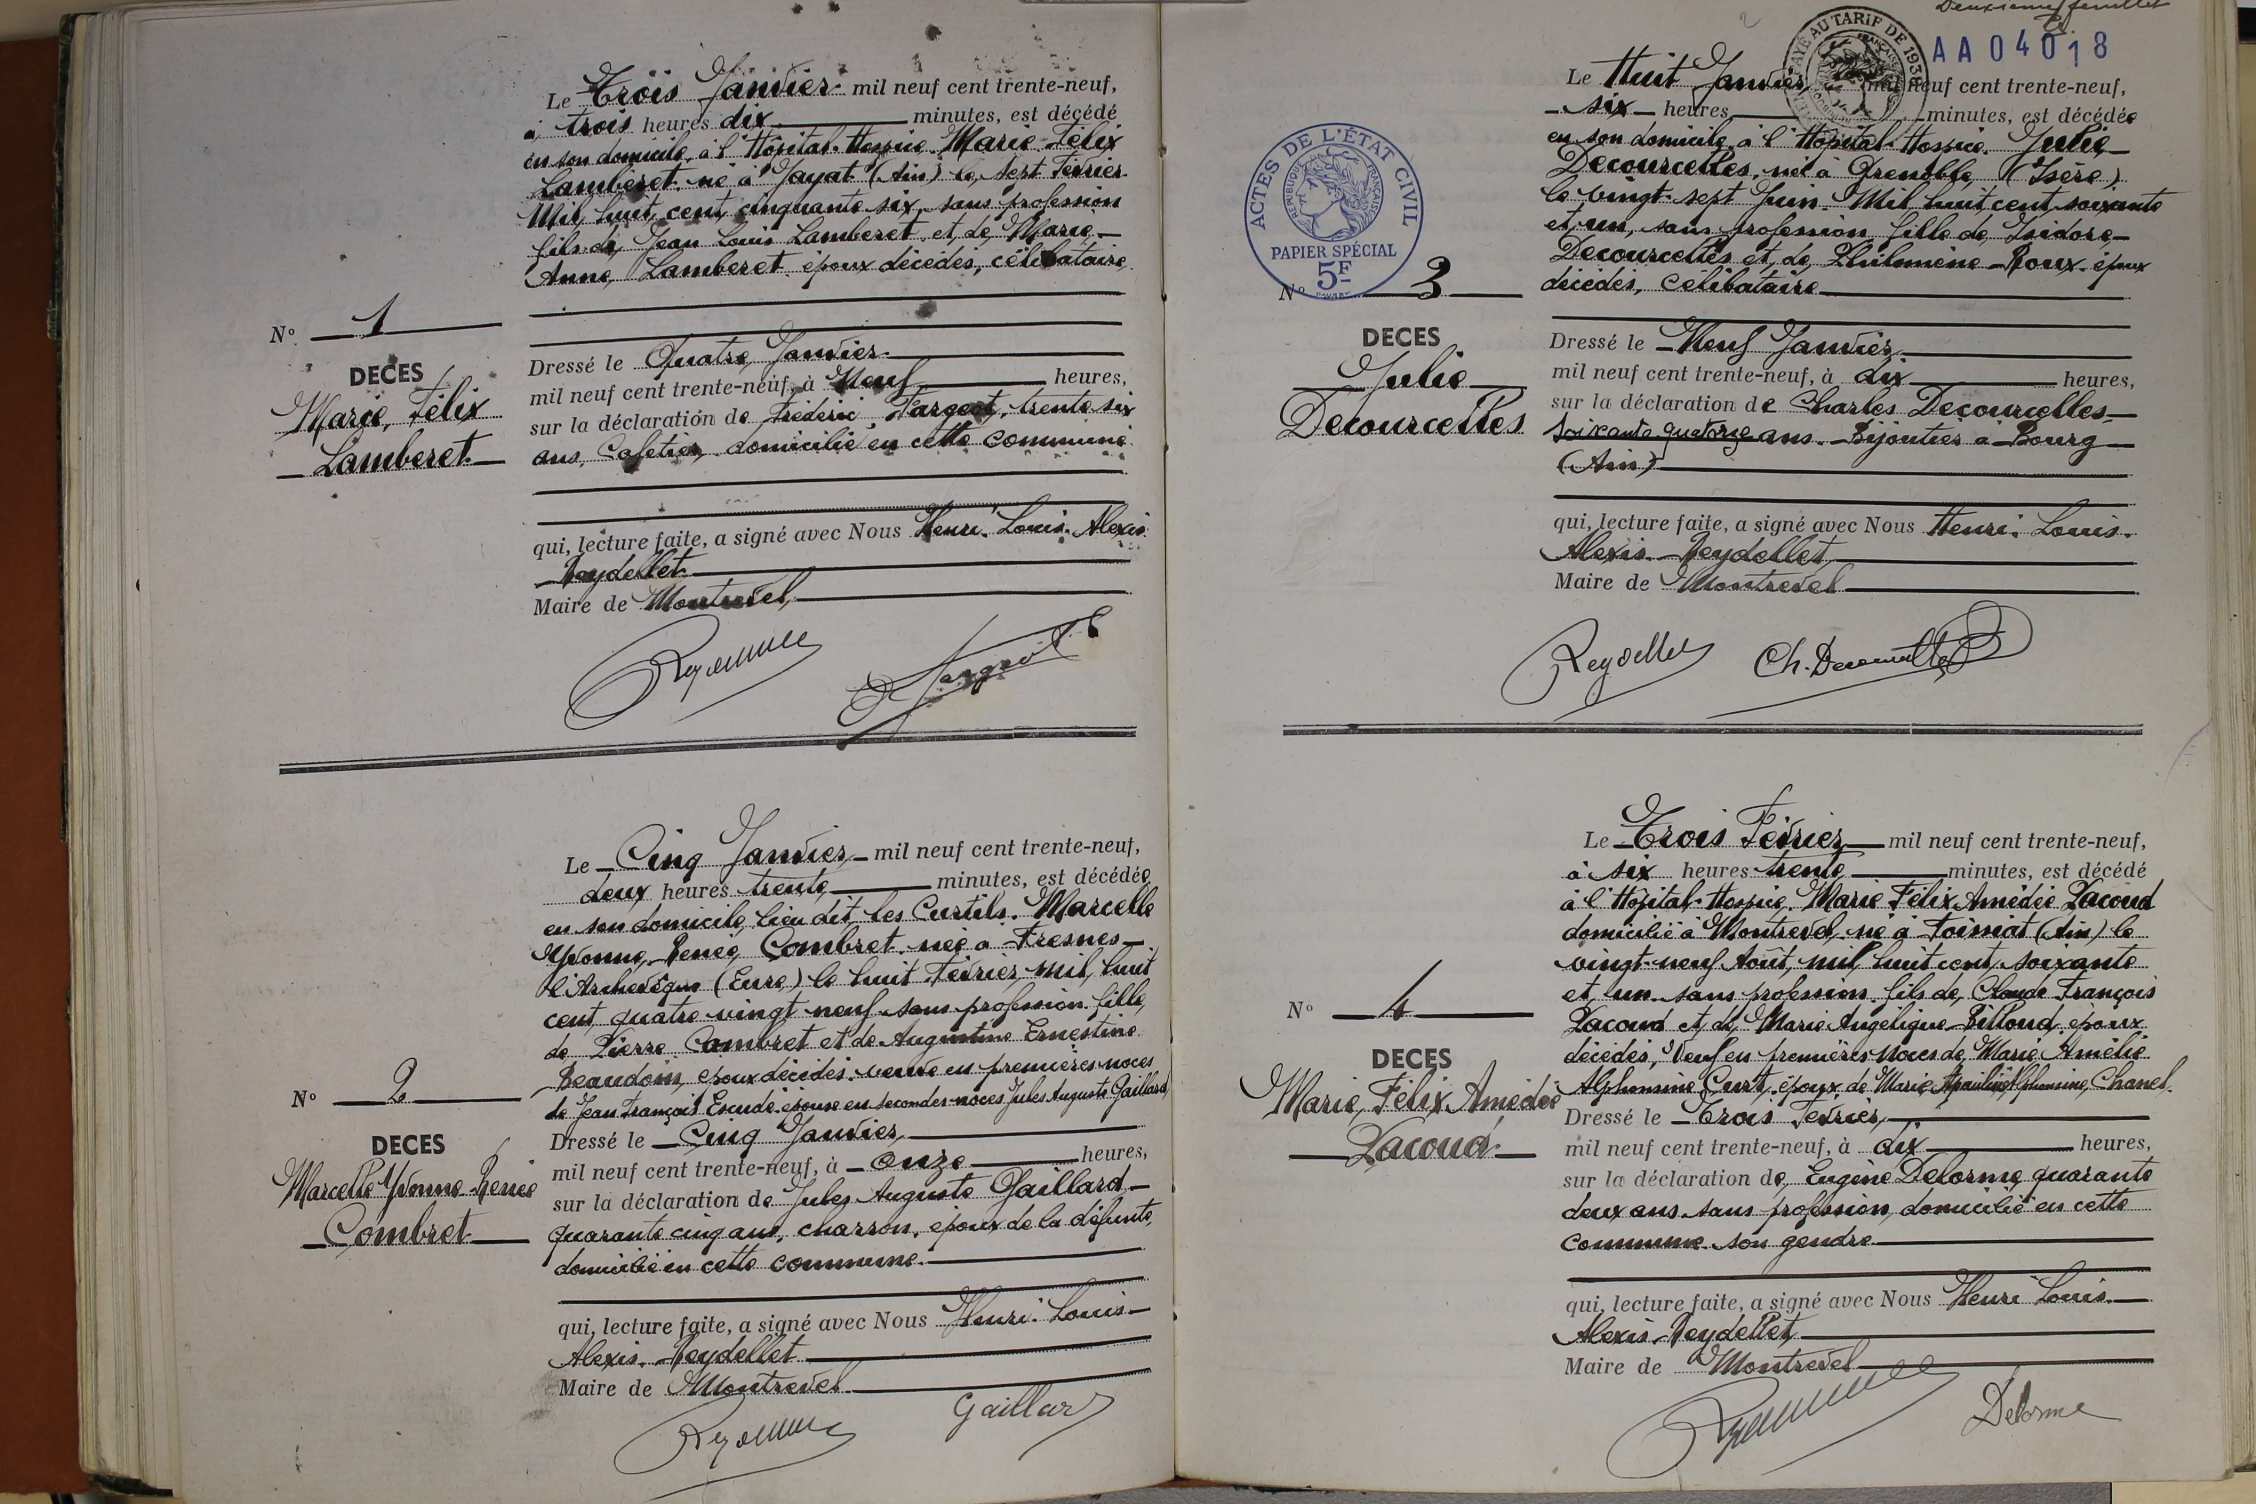 Le Trois Janvier mil neuf cent trente-neuf,
à trois heures dix minutes, est décédé
en son domicile, à l'Hôpital-Hospice Marie Félix
Lamberet né à Jayat (Ain) le, sept Février
Mil, huit, cent, cinquante six, sans profession
fils de, Jean Louis Lamberet, et, de, Marie
Anne, Lamberet époux décédés, célibataire
N° 1
DECES
Marie, Félix
Lamberet
Dressé le Quatre, Janvier
mil neuf cent trente-neuf, à Neuf heures,
sur la déclaration de Frédéric Fargeot, trente six
ans, Cafetier, domicilié en cette commune
qui, lecture faite, a signé avec Nous Henri Louis Alexis
Reydellet
Maire de Montrevel
Le Cinq Janvier mil neuf cent trente-neuf,
deux heures trente minutes, est décédée
en son domicile, lieu dit les Curtils. Marcelle
Yvonne, Renée, Combret née à Fresnes
l'Archevêque (Eure) le huit Février, mil, huit
cent, quatre vingt neuf sans profession fille,
de Pierre Combret et de Augustine Ernestine
Beaudom, époux décédés. veuve en premières noces
de Jean François Escude. épouse en secondes noces Jules Auguste Gaillard
N° 2
DECES
Marcelle Yvonne Renée
Combret
Dressé le Cinq Janvier
mil neuf cent trente-neuf, à onze heures,
sur la déclaration de Jules Auguste Gaillard
quarante cinq ans, charron, époux de la défunte,
domicilié en cette commune.
qui, lecture faite, a signé avec Nous Henri Louis
Alexis Reydellet
Maire de Montrevel
Gaillard
Deuxième feuillet
PAYÉ AU TARIF DE 1938
AA04018
ACTES DE L'ÉTAT CIVIL
RÉPUBLIQUE FRANÇAISE
PAPIER SPÉCIAL
5F
Le Huit Janvier mil neuf cent trente-neuf,
six heures minutes, est décédée
en son domicile, à l'Hôpital-Hospice. Julie
Decourcelles, née à Grenoble, (Isère)
le vingt-sept Juin Mil, huit, cent, soixante
et, un, sans profession fille, de, Isidore
Decourcelles et, de, Philomène Roux époux
décédés, célibataire
N° 3
DECES
Julie
Decourcelles
Dressé le Neuf Janvier
mil neuf cent trente-neuf, à dix heures,
sur la déclaration de Charles Decourcelles
soixante quatorze ans. Bijoutier à Bourg
(Ain)
qui, lecture faite, a signé avec Nous Henri Louis
Alexis Reydellet
Maire de Montrevel
Reydellet Ch. Decourcelles
Le Trois Février mil neuf cent trente-neuf,
à six heures trente minutes, est décédé
à l'Hôpital-Hospice. Marie Félix Amédée Lacoud
domicilié à Montrevel, né à Foissiat (Ain) le
vingt-neuf Août, mil, huit cent, soixante
et, un sans profession fils de, Claude François
Lacoud et, de, Marie Angélique Billoud, époux
décédés, Veuf en premières Noces de, Marie Amélie
Alphonsine, Curt, époux de Marie Alphonsine, Chanel
N° 4
DECES
Marie, Félix Amédée
Lacoud
Dressé le Trois Février
mil neuf cent trente-neuf, à dix heures,
sur la déclaration de, Eugène Delorme, quarante
deux ans sans profession, domicilié en cette
commune son gendre
qui, lecture faite, a signé avec Nous Henri Louis
Alexis Reydellet
Maire de Montrevel
Delorme